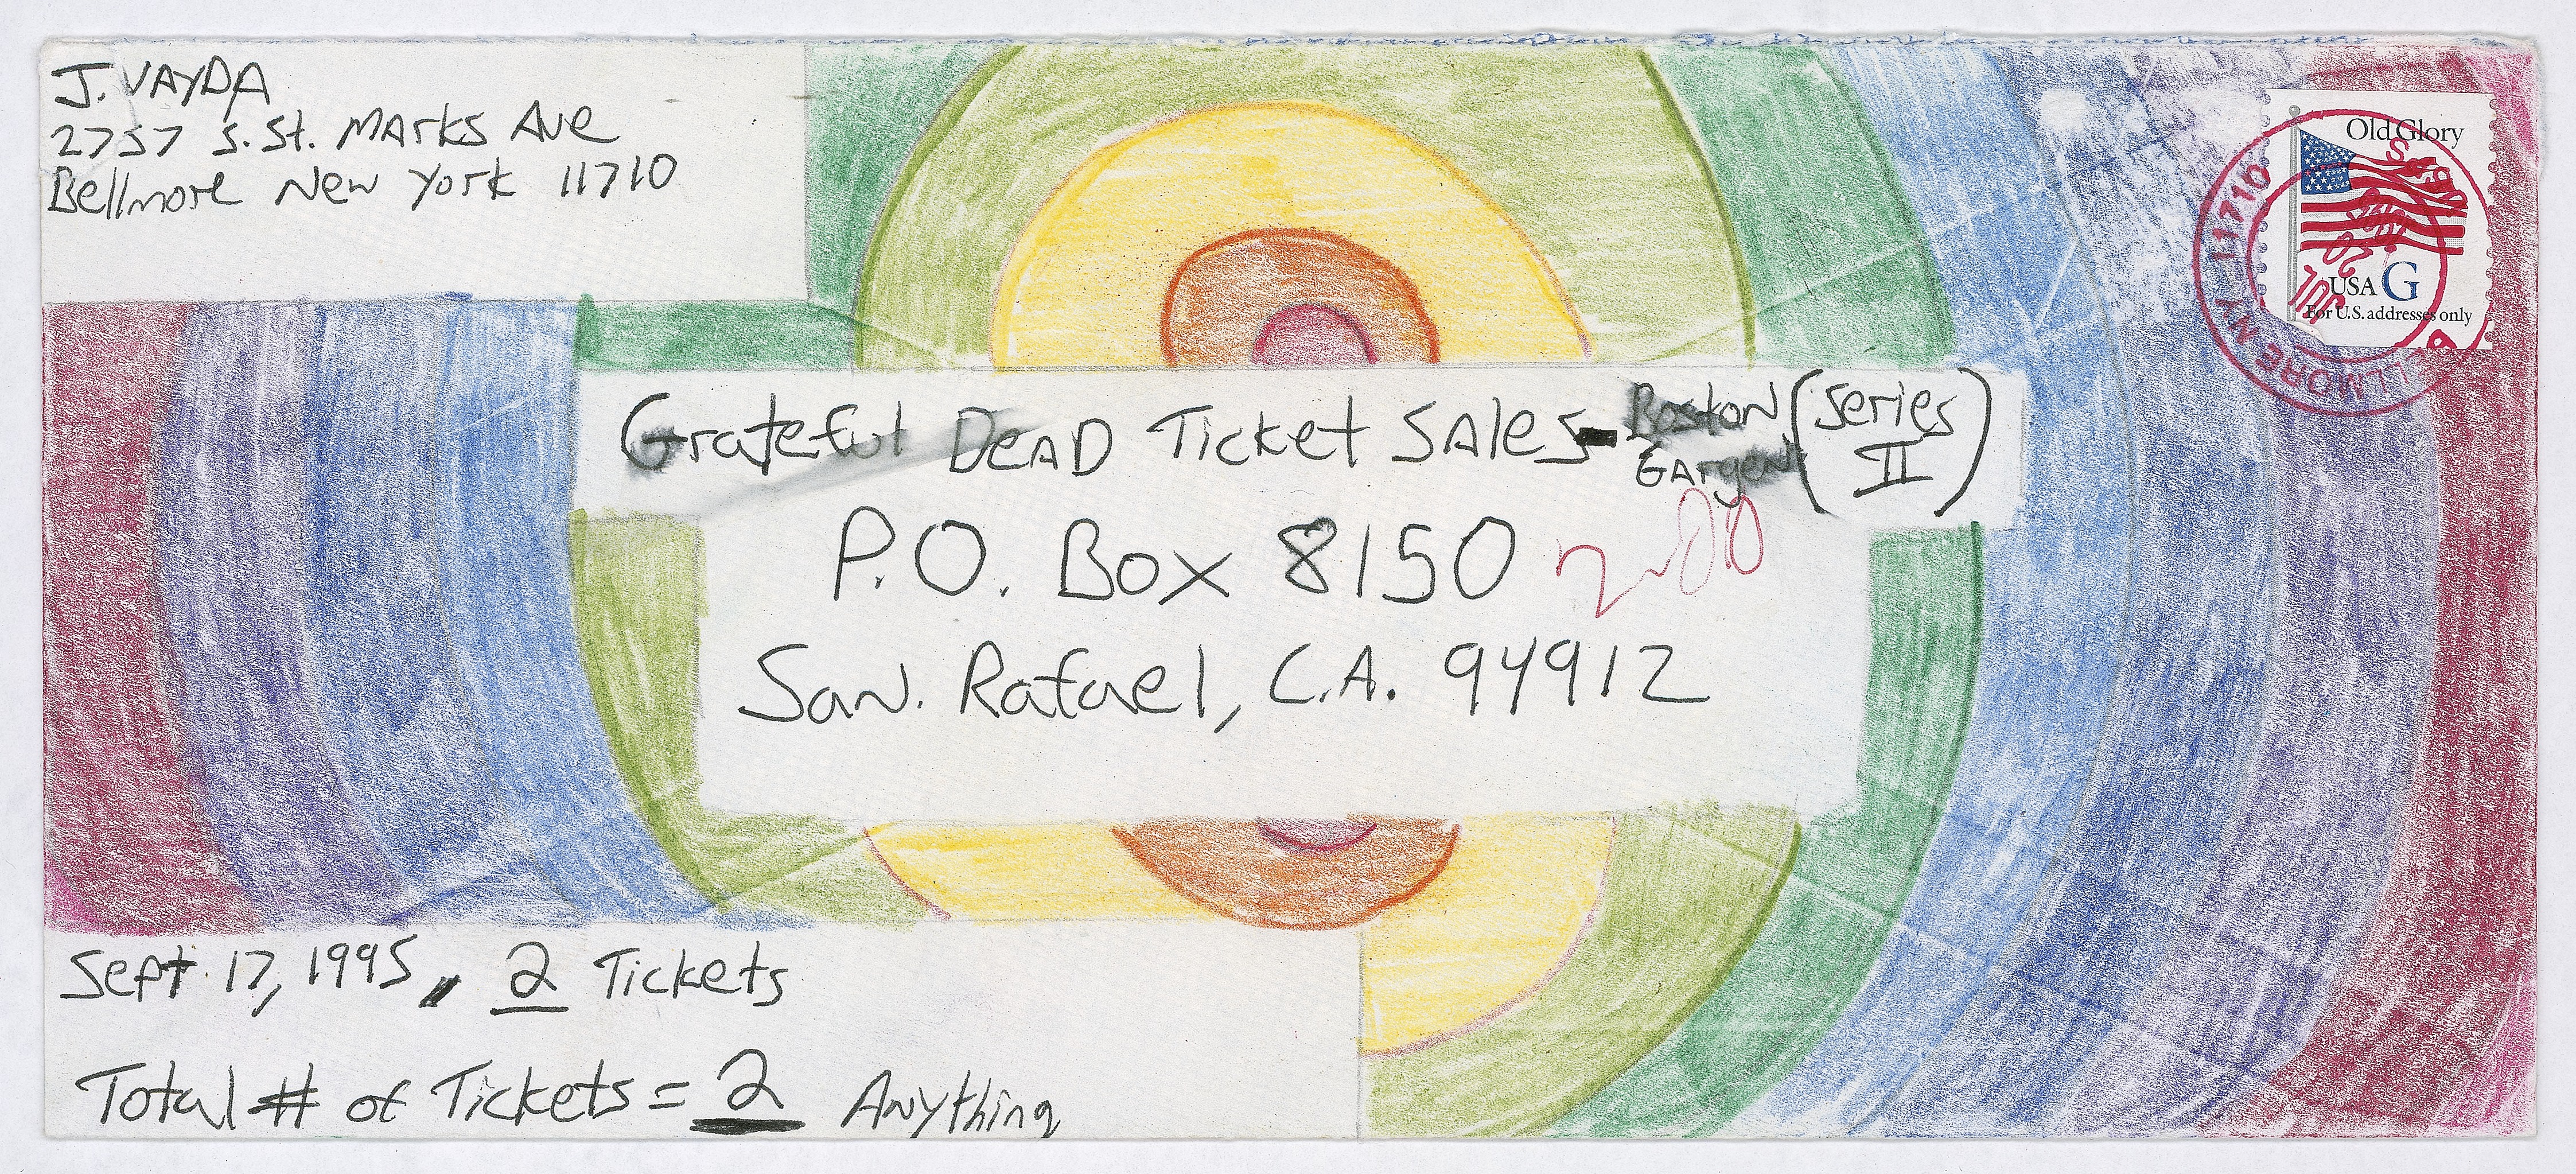 J. VAYDA
2757 S. St. MArks Ave
Bellmore New York 11710
Old Glory
USA G
For U.S. addresses only
LLMORE NY 11710
JUL 20
Grateful DeAD Ticket SAles - Boston GArden (Series II)
P.O. Box 8150
San. Rafael, C.A. 94912
Sept 17, 1995, 2 Tickets
Total # of Tickets = 2 Anything